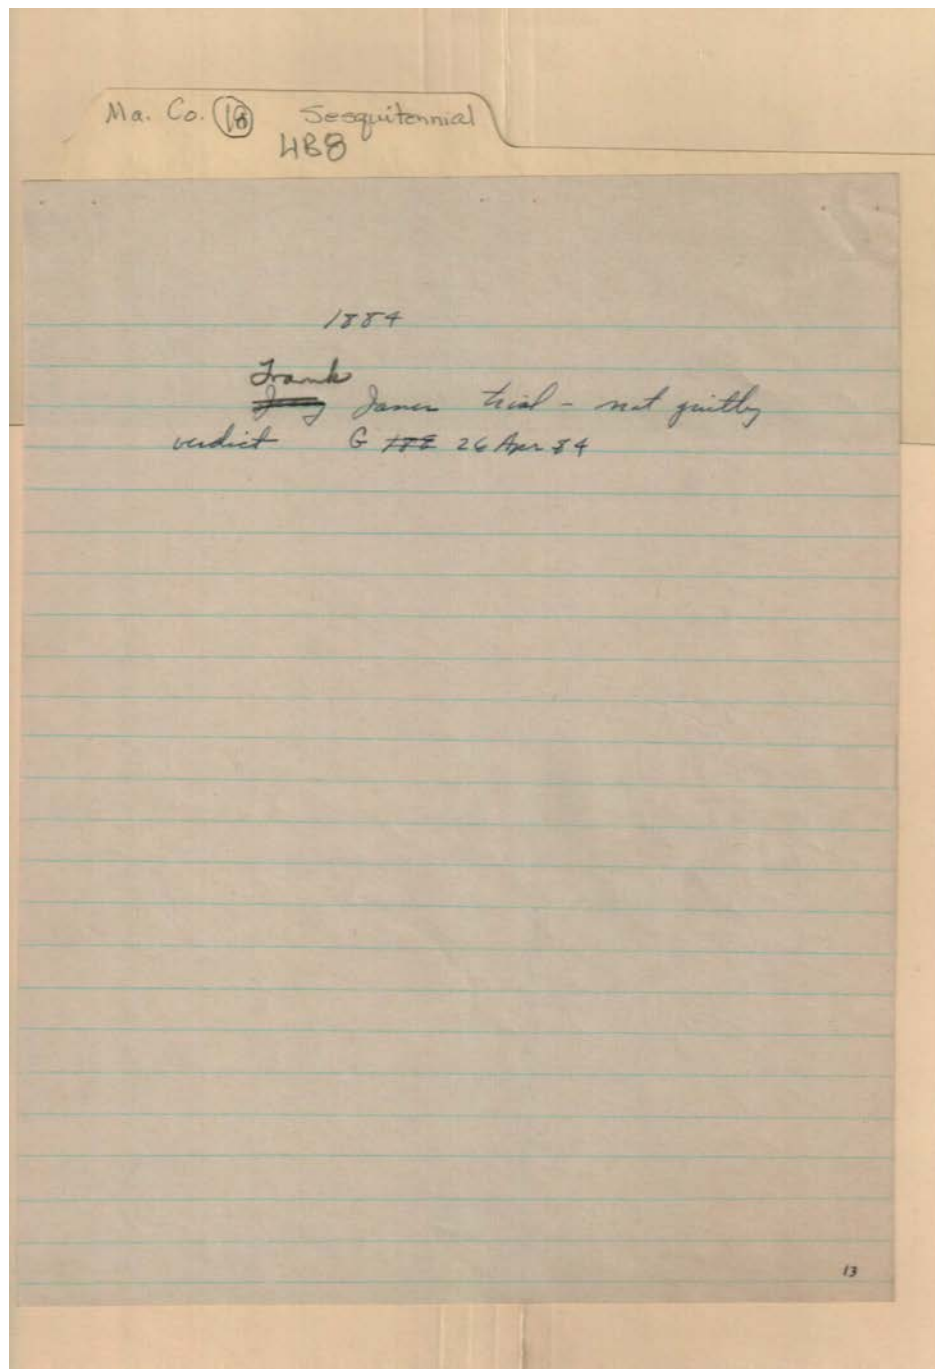 Ma. Co. 18 Sesquitennial
4B8
1884
Frank
James trial - not guitly
verdict G 188 26 Apr 84
13